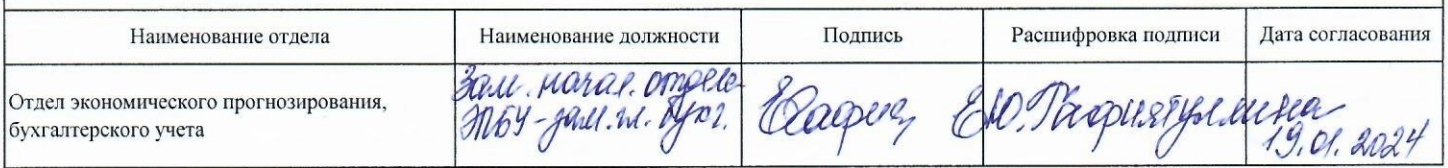 Наименование отдела Наименование должности Подпись Расшифровка подписи Дата согласования
Отдел экономического прогнозирования,
бухгалтерского учета
Зам. начал. отдела
ЭПБУ - зам. гл. бухг.
Е.Ю. Гафиятуллина
19.01.2024